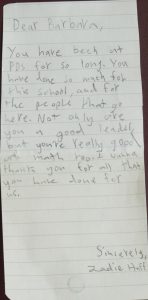 Dear Barbara,
You have been at
PDS for so long. You
have done so much for
this school, and for
the people that go
here. Not only are
you a good leader,
but you're really good
at math too. I wanna
thank you for all that
you have done for
us.
Sincerely,
Zadie